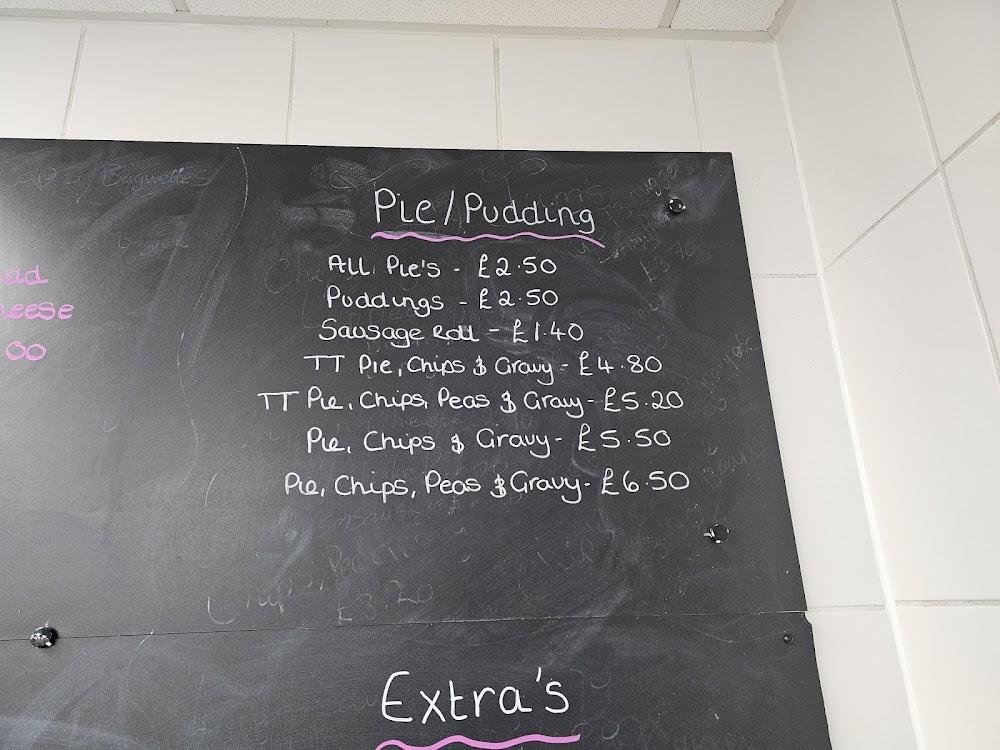 Pie/Pudding
ALL Pie's - £2.50
Puddings - £2.50
Sausage Roll - £1.40
TT Pie, Chips & Gravy - £4.80
TT Pie, Chips, Peas & Gravy - £5.20
Pie, Chips & Gravy - £5.50
Pie, Chips, Peas & Gravy - £6.50
£3.20
Extra's
Baguettes
heese
00